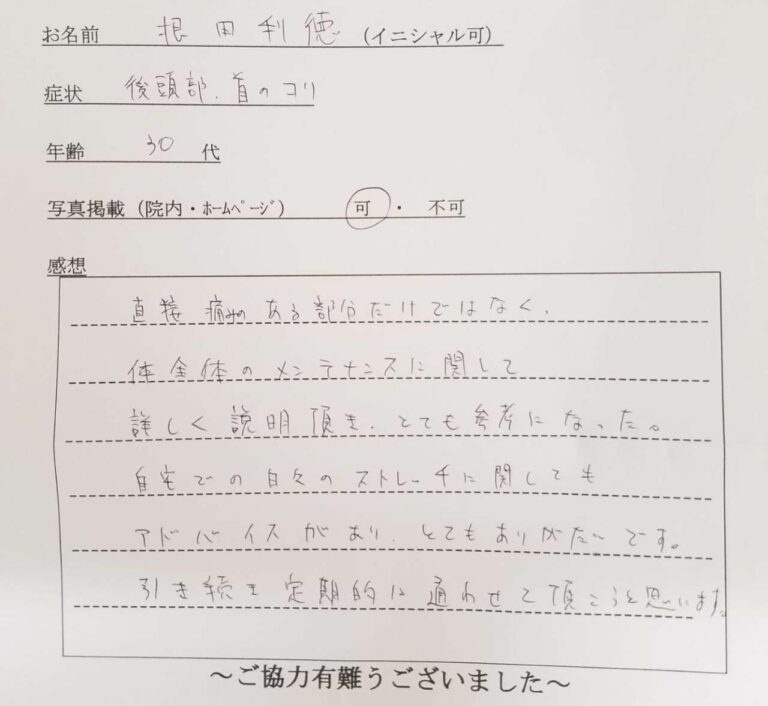 お名前 根田利徳 (イニシャル可)
症状 後頭部、首のコリ
年齢 30 代
写真掲載 (院内・ﾎｰﾑﾍﾟｰｼﾞ) 可 ・ 不可
感想
直接痛みのある部分だけではなく、
体全体のメンテナンスに関して
詳しく説明頂き、とても参考になった。
自宅での日々のストレッチに関しても
アドバイスがあり、とてもありがたいです。
引き続き定期的に通わせて頂こうと思います。
～ご協力有難うございました～